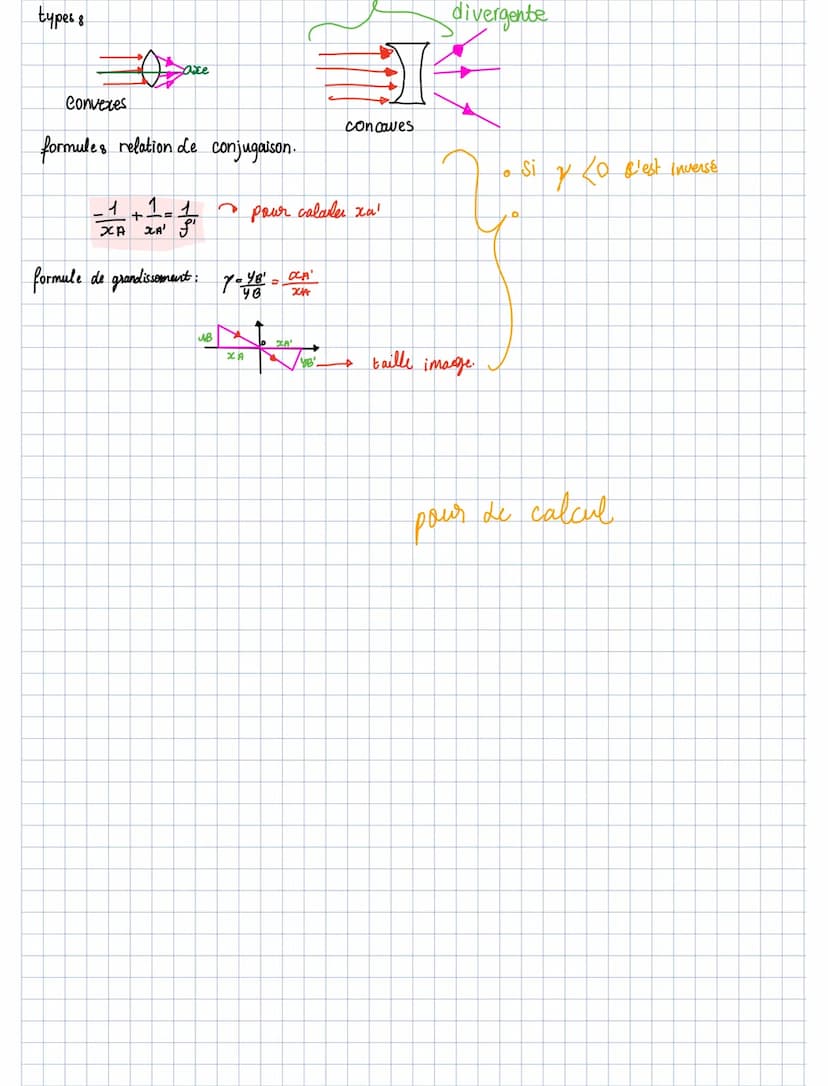 types :
divergente
axe
convexes
concaves
formules relation de conjugaison.
• si γ <0 c'est inversé
-1/xA + 1/xA' = 1/f' → pour calculer xa'
•
formule de grandissement : γ = yB'/yB = xA'/xA
yB
o
xA'
xA
yB' → taille image.
pour de calcul